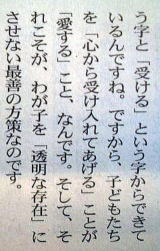 う字と「受ける」という字からできて
いるんですね。ですから、子どもたち
を「心から受け入れてあげる」ことが
「愛する」こと、なんです。そして、そ
れこそが、わが子を「透明な存在」に
させない最善の方策なのです。